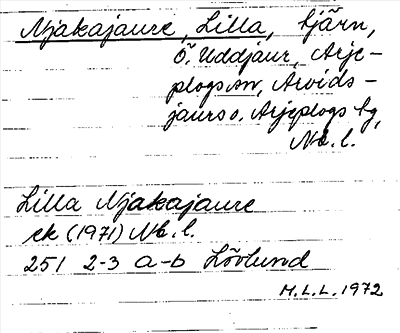 Njakajaure, Lilla, tjärn,
ö. Uddjaur, Arje-
plogs sn, Arvids-
jaurs o. Arjeplogs tg,
Nb. l.
Lilla Njakajaure
ek (1971) Nb. l.
251 2-3 a-b Lövlund
M.L.L. 1972